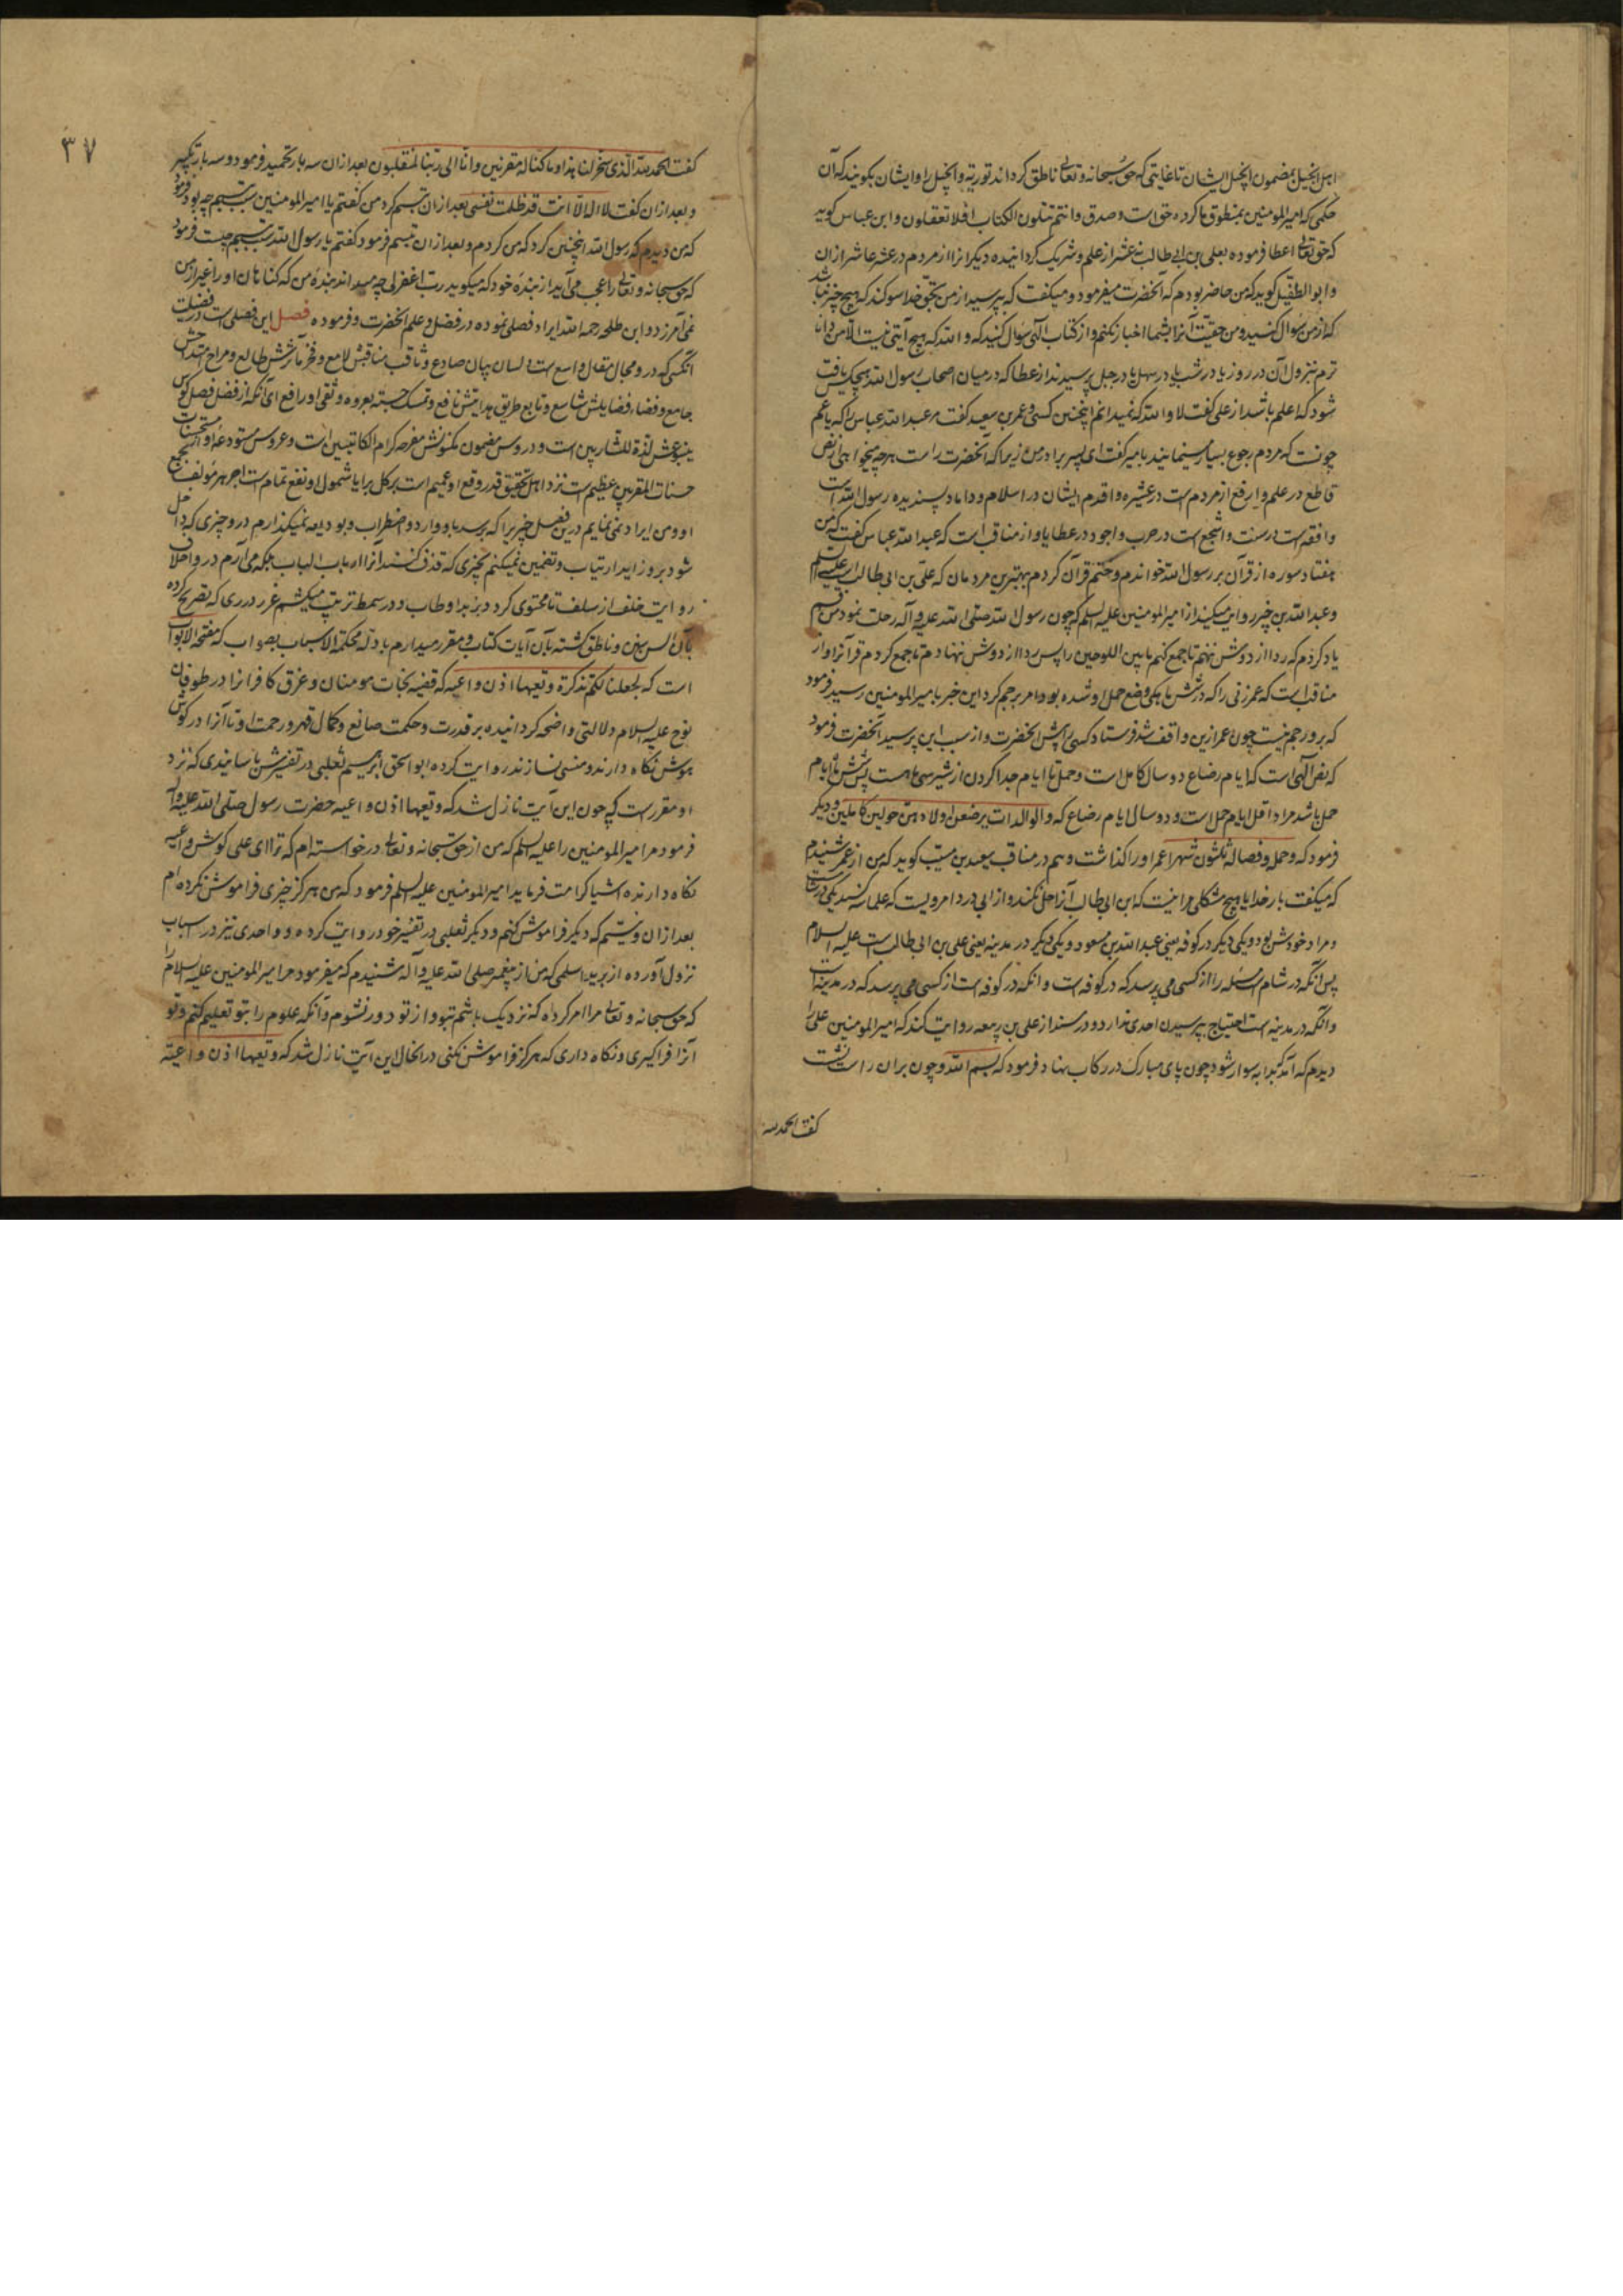 اهل انجیل بمضمون انجیل ایشان تا غایتی که حق سبحانه و تعالی ناطق کرداند توریة و انجیل را و ایشان بکویند که آن
حکمی که امیر المومنین بمنطوق ما کرده حق است و صدق و انتم تتلون الکتاب افلا تعقلون و ابن عباس کوید
که حق تعالی اعطا فرموده بعلی بن ابی طالب نه عشر از علم و شریک کردانیده دیکرانرا از مردم در عشر عاشر از ان
و ابو الطفیل کوید که من حاضر بودم که آنحضرت میفرمود و میکفت که بپرسید از من بحق خدا سوکند که هیچ چیز نباشد
که از من سوال کنید و من حقیت آنرا بشما اخبار نکنم و از کتاب الهی سوال کنید که و الله که هیچ آیتی نیست الا من دانا
ترم بنزول آن در روز یا در شب یا در سهل یا در جبل پرسیدند از عطا که در میان اصحاب رسول الله هیچکس یافت
شود که اعلم باشد از علی کفت لا و الله که نمیدانم اینچنین کسی و عمر بن سعید کفت مر عبد الله عباس را که یا عم
چونست که مردم رجوع بسیار مینمایند بامیر کفت ای پسر برادر من زیرا که آنحضرت راست هر چه میخواهی از نص
قاطع در علم و ارفع از مردم است در عشیره و اقدم ایشان در اسلام و داماد پسندیده رسول الله است
و افقه است در سنت و اشجع است در حرب و اجود در عطایا و از مناقب است که عبد الله عباس کفت که من
هفتاد سوره از قرآن بر رسول الله خواندم و ختم قرآن کردم بهترین مردمان که علی بن ابی طالب است علیه السلم
و عبد الله بن خیر روایت میکند از امیر المومنین علیه السلم که چون رسول الله صلی الله علیه و آله رحلت نمود من قسم
یاد کردم که ردا از دوش ننهم تا جمع کنم ما بین اللوحین را پس ردا از دوش ننهادم تا جمع کردم قرآنرا و از
مناقب است که عمر زنی را که در شش ماهکی وضع حمل او شده بود امر برجم کرد این خبر بامیر المومنین رسید فرمود
که برو رجم نیست چون عمر ازین واقف شد فرستاد کسی را پیش آنحضرت و از سبب این پرسید آنحضرت فرمود
که نص الهی است که ایام رضاع دو سال کامل است و حمل تا ایام جدا کردن از شیر سی ماهست پس شش ماه ایام
حمل باشد مراد اقل ایام حمل است و دو سال ایام رضاع که و الوالدات یرضعن اولادهن حولین کاملین و دیکر
فرمود که و حمله و فصاله ثلثون شهرا عمر او را کذاشت و هم در مناقب سعید بن مسیب کوید که من از عمر شنیدم
که میکفت بار خدایا هیچ مشکلی مرا نیست که ابن ابی طالب آنرا حل نکند و از ابی دردا مرویست که علما سه اند یکی در شام
و مراد خودش بود و یکی دیکر در کوفه یعنی عبد الله بن مسعود و یکی دیکر در مدینه یعنی علی بن ابی طالب است علیه السلام
پس آنکه در شام است مسئله را از کسی می پرسد که در کوفه است و آنکه در کوفه است از کسی می پرسد که در مدینه است
و آنکه در مدینه است احتیاج بپرسیدن احدی ندارد و در مسند از علی بن ربیعه روایت کند که امیر المومنین علی را
دیدم که آمد که بدابه سوار شود چون پای مبارک در رکاب نهاد فرمود که بسم الله و چون بران راست نشست
کفت الحمد لله
۳۷
کفت الحمد لله الذی سخر لنا هذا و ما کنا له مقرنین و انا الی ربنا لمنقلبون بعد ازان سه بار تحمید فرمود و سه بار تکبیر
و بعد ازان کفت لا اله الا انت قد ظلمت نفسی بعد ازان تبسم کرد من کفتم یا امیر المومنین سبب تبسم چه بود فرمود
که من دیدم که رسول الله اینچنین کرد که من کردم و بعد ازان تبسم فرمود کفتم یا رسول الله سبب تبسم چیست فرمود
که حق سبحانه و تعالی را عجب می آید از بنده خود که میکوید رب اغفر لی چه میداند بنده من که کناهان او را غیر از من
نمی آمرزد و ابن طلحه رحمه الله ایراد فصلی نموده در فضل و علم آنحضرت و فرموده فصل این فصلی است در فضیلت
آنکسی که درو مجال مقال واسع است و لسان بیان صادع و ثاقب مناقبش لامع و فخر مآثرش طالع و مراح امتداحش
جامع و فضاء فضایلش شاسع و تابع طریق هدایتش نافع و تمسک جسته بعروه وثقی او رافع ای آنکه از فضل فصل کوش
ینبوعش لذة للشاربین است و دروس مضمون مکنونش مفرح کرام الکاتبین است و عروس مستودعه او از مستحسنات
حسنات المقربین عظیم است نزد اهل تحقیق قدر وقع او عمیم است بر کل برایا شمول او نفع تمام است اجر هر مولف جامع
او و من ایراد نمی نمایم درین فصل چیزیرا که برسد باو وارد و اضطراب و بودیعه نمیکذارم درو چیزی که داخل
شود برو زاید ارتیاب و تضمین نمیکنم بچیزی که قذف کنند آنرا ارباب الباب بلکه می آرم درو اخلاف
روایت خلف از سلف تا محتوی کردد بزبد اوطاب و در سمط ترتیب میکشم غرر درری که تصریح کرده
بآن السن سنن و ناطق کشته بآن آیات کتاب و مقرر میدارم بادله محکمة الاسباب بصواب که مفتحة الابواب
است که لنجعلنا لکم تذکرة و تعیها اذن واعیه که قضیه نجات مومنان و غرق کافرانرا در طوفان
نوح علیه السلام دلالتی واضحه کردانیده بر قدرت و حکمت صانع و کمال قهر و رحمت او تا آنرا در کوش
هوش نکاه دارند و منسی نسازند روایت کرده ابو اسحق ابراهیم ثعلبی در تفسیرش باسانیدی که نزد
او مقرر است که چون این آیت نازل شد که و تعیها اذن واعیه حضرت رسول صلی الله علیه و آله
فرمود مر امیر المومنین را علیه السلم که من از حق سبحانه و تعالی درخواسته ام که ترا ای علی کوش واعیه
نکاه دارنده اشیا کرامت فرماید امیر المومنین علیه السلم فرمود که من هرکز چیزی فراموش نکرده ام
بعد ازان و نیستم که دیکر فراموش کنم و دیکر ثعلبی در تفسیر خود روایت کرده و واحدی نیز در اسباب
نزول آورده از بریده اسلمی که من از پیغمبر صلی الله علیه و آله شنیدم که میفرمود مر امیر المومنین علیه السلام را
که حق سبحانه و تعالی مرا امر کرده که نزدیک باشم بتو و از تو دور نشوم و آنکه علوم را بتو تعلیم کنم و تو
آنرا فراکیری و نکاه داری که هرکز فراموش نکنی در انحال این آیت نازل شد که و تعیها اذن واعیة